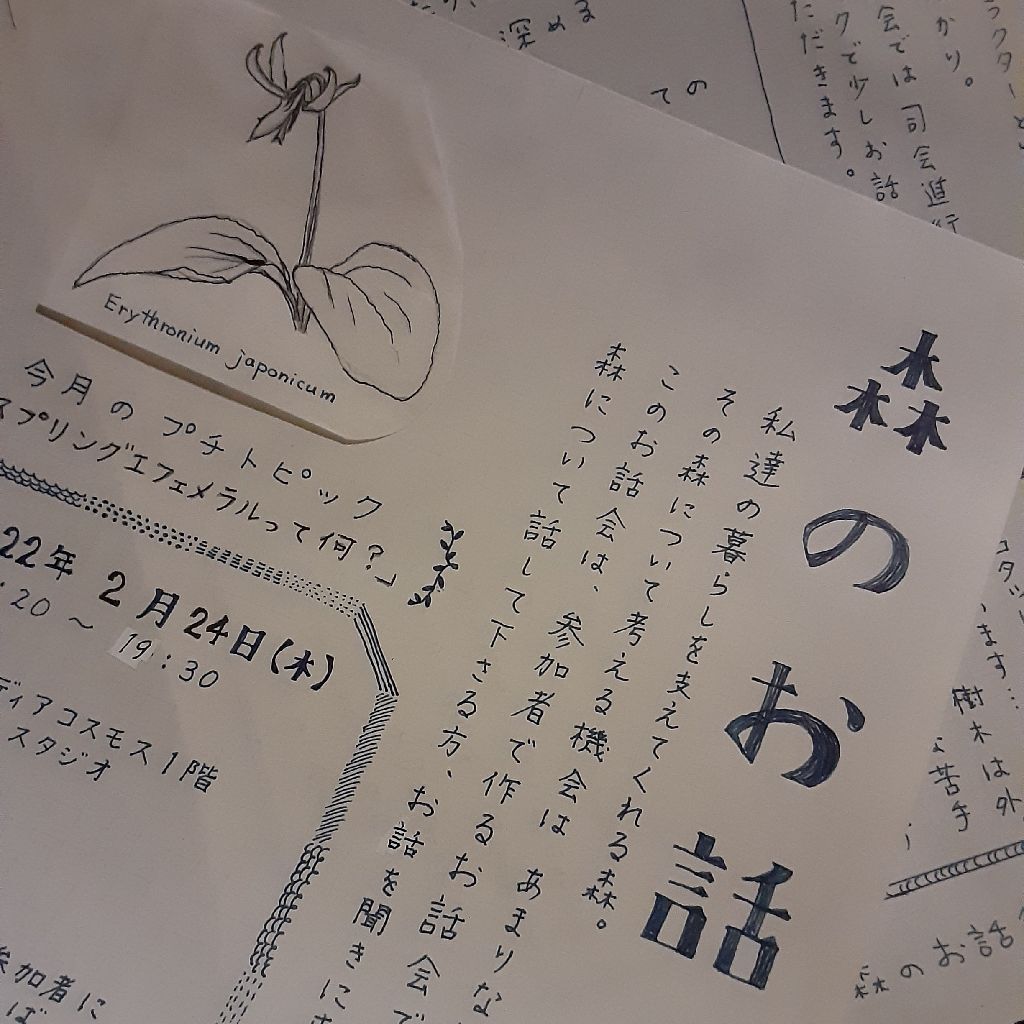 森のお話
私達の暮らしを支えてくれる森。
その森について考える機会は あまりな
このお話会は、参加者で作るお話会で
森について話して下さる方、お話を聞きに
Erythronium japonicum
今月のプチトピック
スプリングエフェメラルって何?」
22年 2月24日(木)
:20 〜 19:30
ディアコスモス1階
スタジオ
参加者に
ば
深める
ての
ラクターと
かり。
会では司会進行
クで少しお話
ただきます。
コタツ
います…
樹木は外
な苦手
森のお話